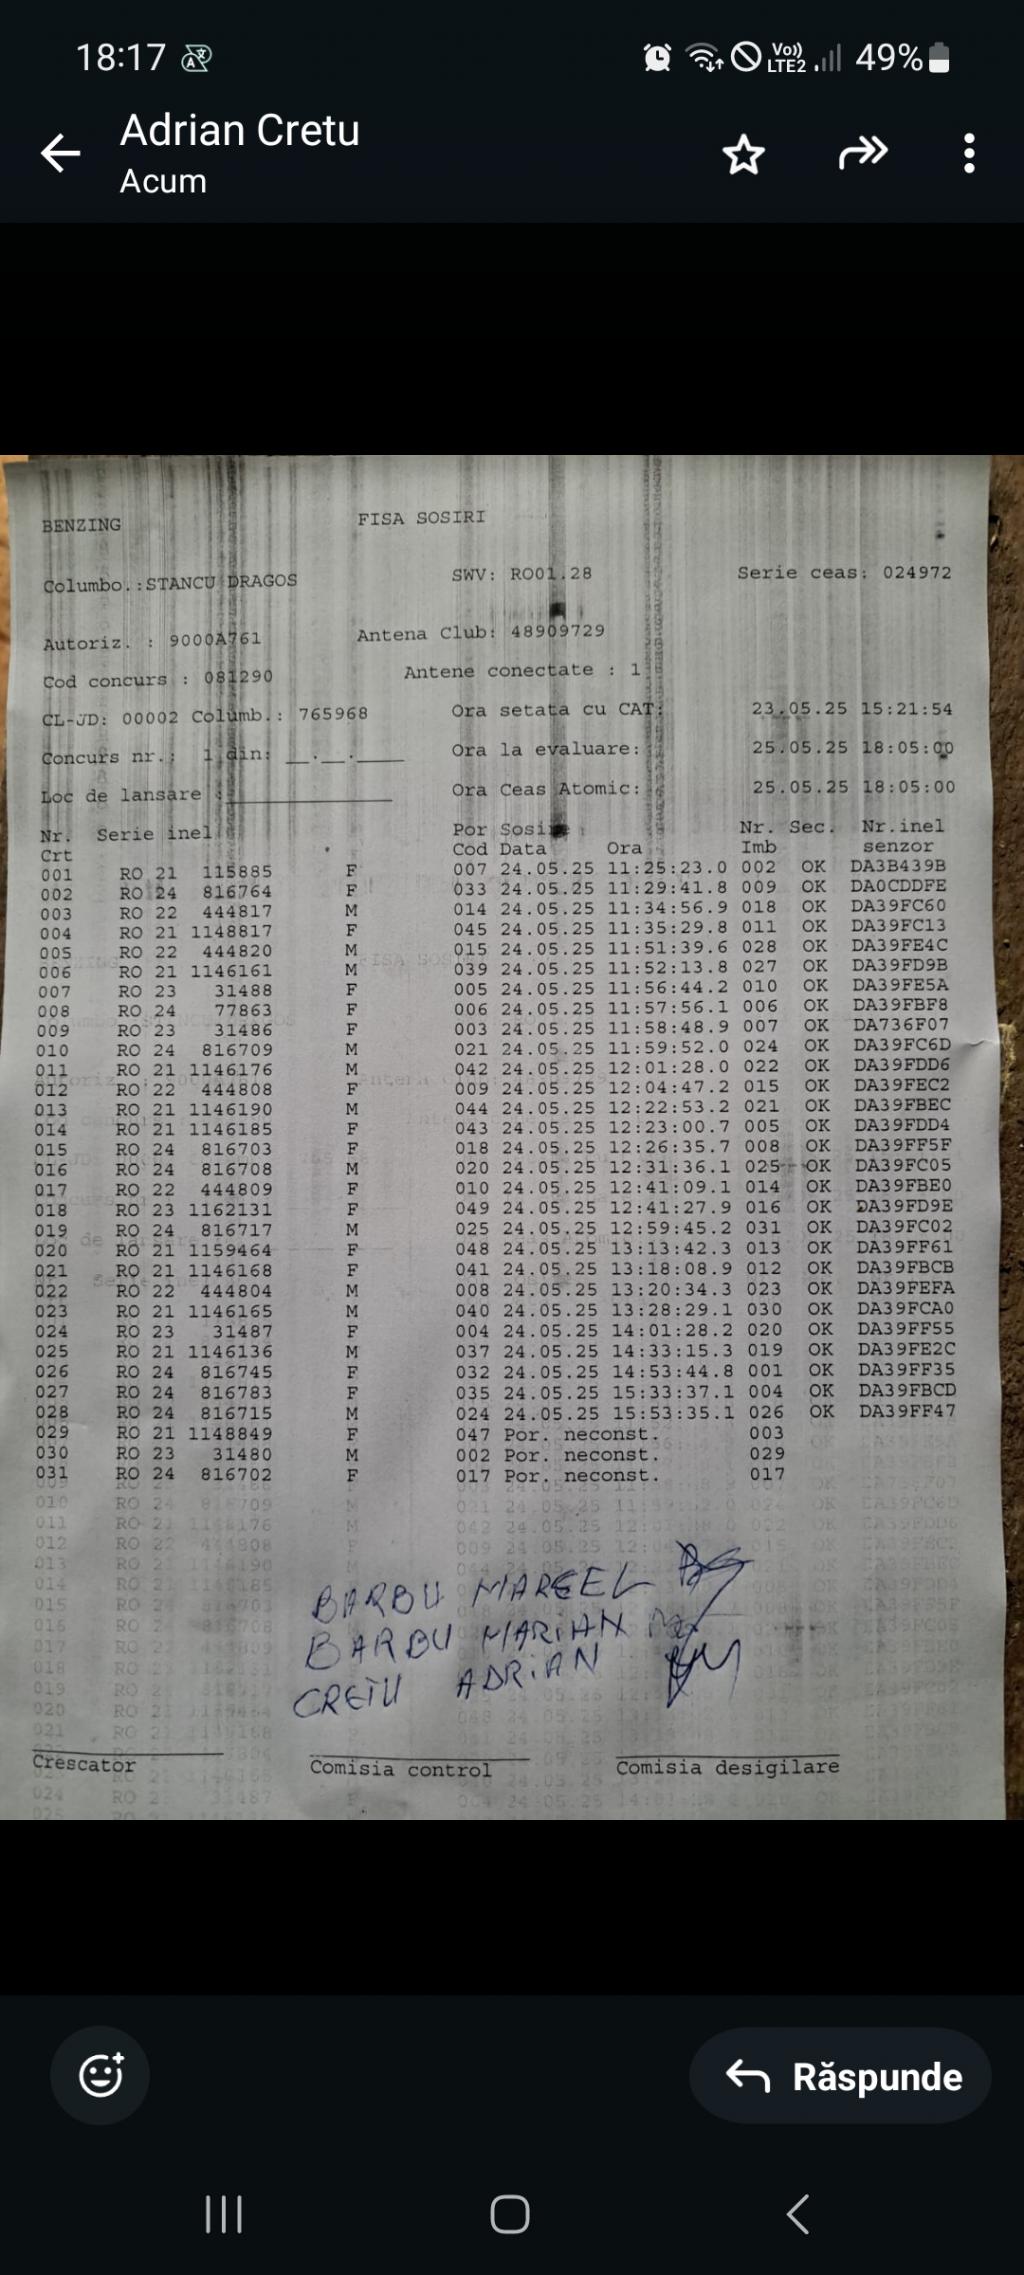 18:17 Vo)) LTE2 49%
Adrian Cretu
Acum
BENZING FISA SOSIRI
Columbo.:STANCU DRAGOS SWV: RO01.28 Serie ceas: 024972
Autoriz. : 9000A761 Antena Club: 48909729
Cod concurs : 081290 Antene conectate : 1
CL-JD: 00002 Columb.: 765968 Ora setata cu CAT: 23.05.25 15:21:54
Concurs nr.: 1 din: __.__.____ Ora la evaluare: 25.05.25 18:05:00
Loc de lansare : Ora Ceas Atomic: 25.05.25 18:05:00
Nr. Serie inel Por Sosire Nr. Sec. Nr.inel
Crt Cod Data Ora Imb senzor
001 RO 21 115885 F 007 24.05.25 11:25:23.0 002 OK DA3B439B
002 RO 24 816764 F 033 24.05.25 11:29:41.8 009 OK DA0CDDFE
003 RO 22 444817 M 014 24.05.25 11:34:56.9 018 OK DA39FC60
004 RO 21 1148817 F 045 24.05.25 11:35:29.8 011 OK DA39FC13
005 RO 22 444820 M 015 24.05.25 11:51:39.6 028 OK DA39FE4C
006 RO 21 1146161 M 039 24.05.25 11:52:13.8 027 OK DA39FD9B
007 RO 23 31488 F 005 24.05.25 11:56:44.2 010 OK DA39FE5A
008 RO 24 77863 F 006 24.05.25 11:57:56.1 006 OK DA39FBF8
009 RO 23 31486 F 003 24.05.25 11:58:48.9 007 OK DA736F07
010 RO 24 816709 M 021 24.05.25 11:59:52.0 024 OK DA39FC6D
011 RO 21 1146176 M 042 24.05.25 12:01:28.0 022 OK DA39FDD6
012 RO 22 444808 F 009 24.05.25 12:04:47.2 015 OK DA39FEC2
013 RO 21 1146190 M 044 24.05.25 12:22:53.2 021 OK DA39FBEC
014 RO 21 1146185 F 043 24.05.25 12:23:00.7 005 OK DA39FDD4
015 RO 24 816703 F 018 24.05.25 12:26:35.7 008 OK DA39FF5F
016 RO 24 816708 M 020 24.05.25 12:31:36.1 025 OK DA39FC05
017 RO 22 444809 F 010 24.05.25 12:41:09.1 014 OK DA39FBE0
018 RO 23 1162131 F 049 24.05.25 12:41:27.9 016 OK DA39FD9E
019 RO 24 816717 M 025 24.05.25 12:59:45.2 031 OK DA39FC02
020 RO 21 1159464 F 048 24.05.25 13:13:42.3 013 OK DA39FF61
021 RO 21 1146168 F 041 24.05.25 13:18:08.9 012 OK DA39FBCB
022 RO 22 444804 M 008 24.05.25 13:20:34.3 023 OK DA39FEFA
023 RO 21 1146165 M 040 24.05.25 13:28:29.1 030 OK DA39FCA0
024 RO 23 31487 F 004 24.05.25 14:01:28.2 020 OK DA39FF55
025 RO 21 1146136 M 037 24.05.25 14:33:15.3 019 OK DA39FE2C
026 RO 24 816745 F 032 24.05.25 14:53:44.8 001 OK DA39FF35
027 RO 24 816783 F 035 24.05.25 15:33:37.1 004 OK DA39FBCD
028 RO 24 816715 M 024 24.05.25 15:53:35.1 026 OK DA39FF47
029 RO 21 1148849 F 047 Por. neconst. 003
030 RO 23 31480 M 002 Por. neconst. 029
031 RO 24 816702 F 017 Por. neconst. 017
BARBU MARCEL
BARBU MARIAN
CRETU ADRIAN
Crescator Comisia control Comisia desigilare
Răspunde